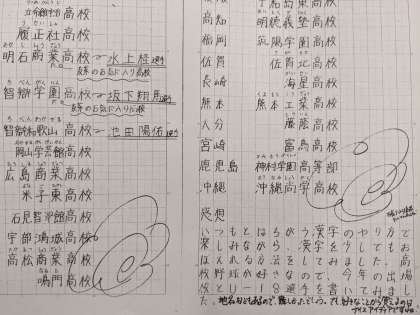 立命館宇治高校
履正社高校
明石商業高校 水上桂選手
去年のお気に入り高校
智辯学園高校 坂下翔馬選手
去年のお気に入り高校
智辯和歌山高校 池田陽佑選手
岡山学芸館高校
広島商業高校
米子東高校
石見智翠館高校
宇部鴻城高校
高松商業高校
鳴門高校
高知 明徳義塾高校
福岡 筑陽学園高校
佐賀 佐賀北高校
長崎 海星高校
熊本 熊本工業高校
大分 藤蔭高校
宮崎 富島高校
鹿児島 神村学園高等部
沖縄 沖縄尚学高校
感想
いつもとはちがう漢字のやり方で
楽しみながら、漢字を少しでもお
ぼえれる方法でやってみました。高
校野球が好きなので、今年の出場
校とU-18選手を書いてみまし
た。